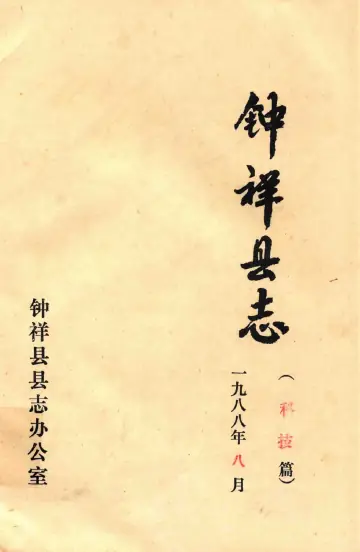 钟祥县志
（科技篇）
一九八八年八月
钟祥县县志办公室